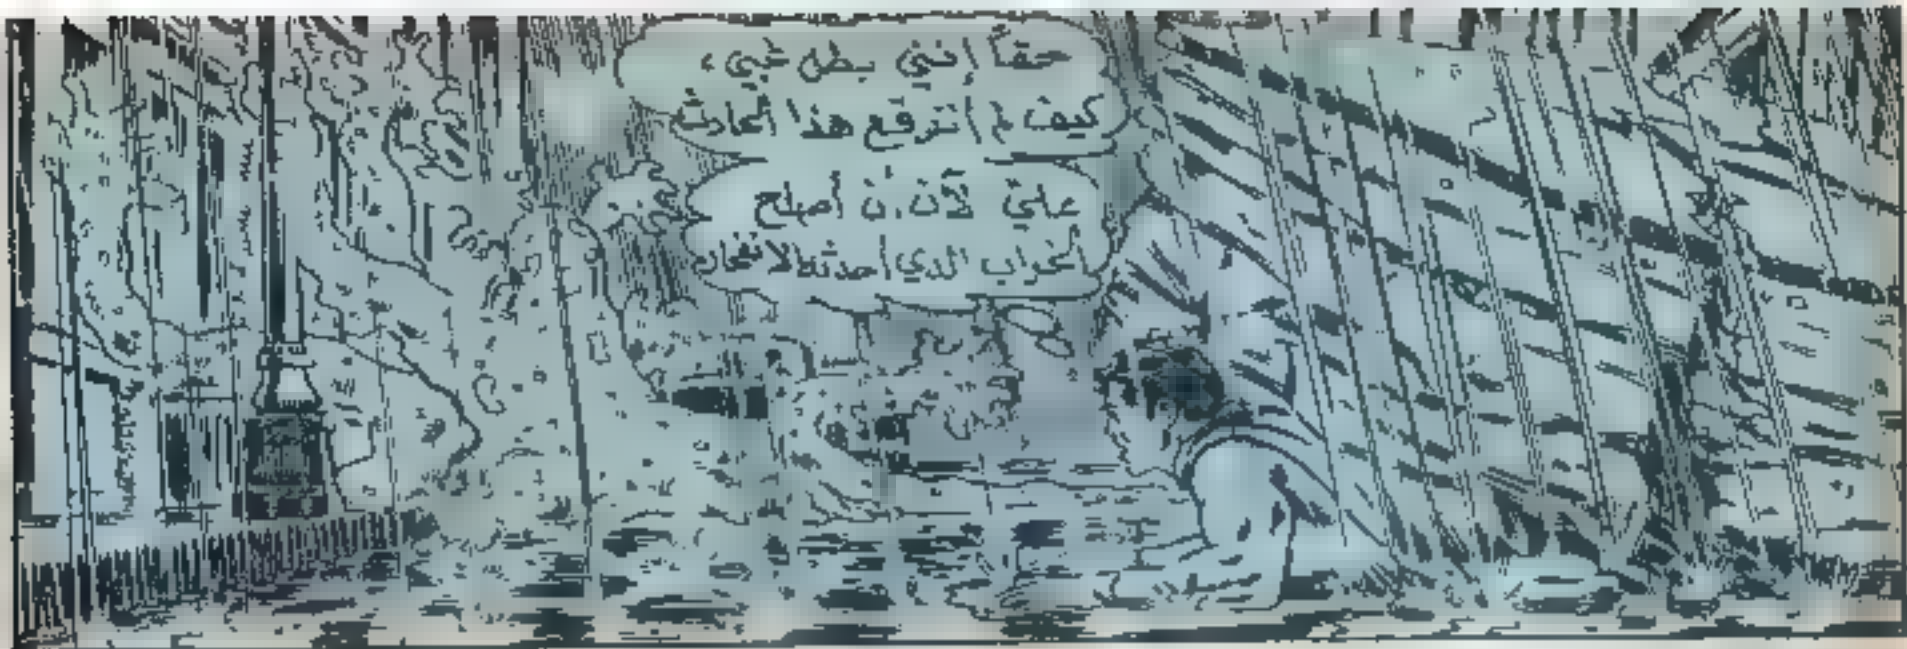 حقاً إنني بطل غبي،
كيف لم أتوقع هذا الحادث
عليّ الآن أن أصلح
الخراب الذي أحدثه الانفجار